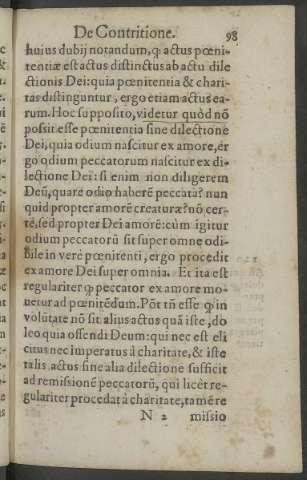 De Contritione. 98
huius dubij notandum, ꝙ actus pœni-
tentiæ est actus distinctus ab actu dile
ctionis Dei: quia pœnitentia & chari-
tas distinguntur, ergo etiam actus ea-
rum. Hoc supposito, videtur quòd nō
possit esse pœnitentia sine dilectione
Dei, quia odium nascitur ex amore, er
go odium peccatorum nascitur ex di-
lectione Dei: si enim non diligerem
Deū, quare odio haberē peccata? nun
quid propter amorē creaturæ? nō cer-
tè, sed propter Dei amorē: cum igitur
odium peccatorū sit super omne odi-
bile in verè pœnitenti, ergo procedit
ex amore Dei super omnia. Et ita est
regulariter ꝙ peccator ex amore mo-
uetur ad pœnitēdum. Pōt tñ esse ꝙ in
volūtate nō sit alius actus quā iste, do
leo quia offendi Deum: qui nec est eli
citus nec imperatus à charitate, & iste
talis actus sine alia dilectione sufficit
ad remissionē peccatorū, qui licèt re-
gulariter procedat à charitate, tamē re
N 2 missio